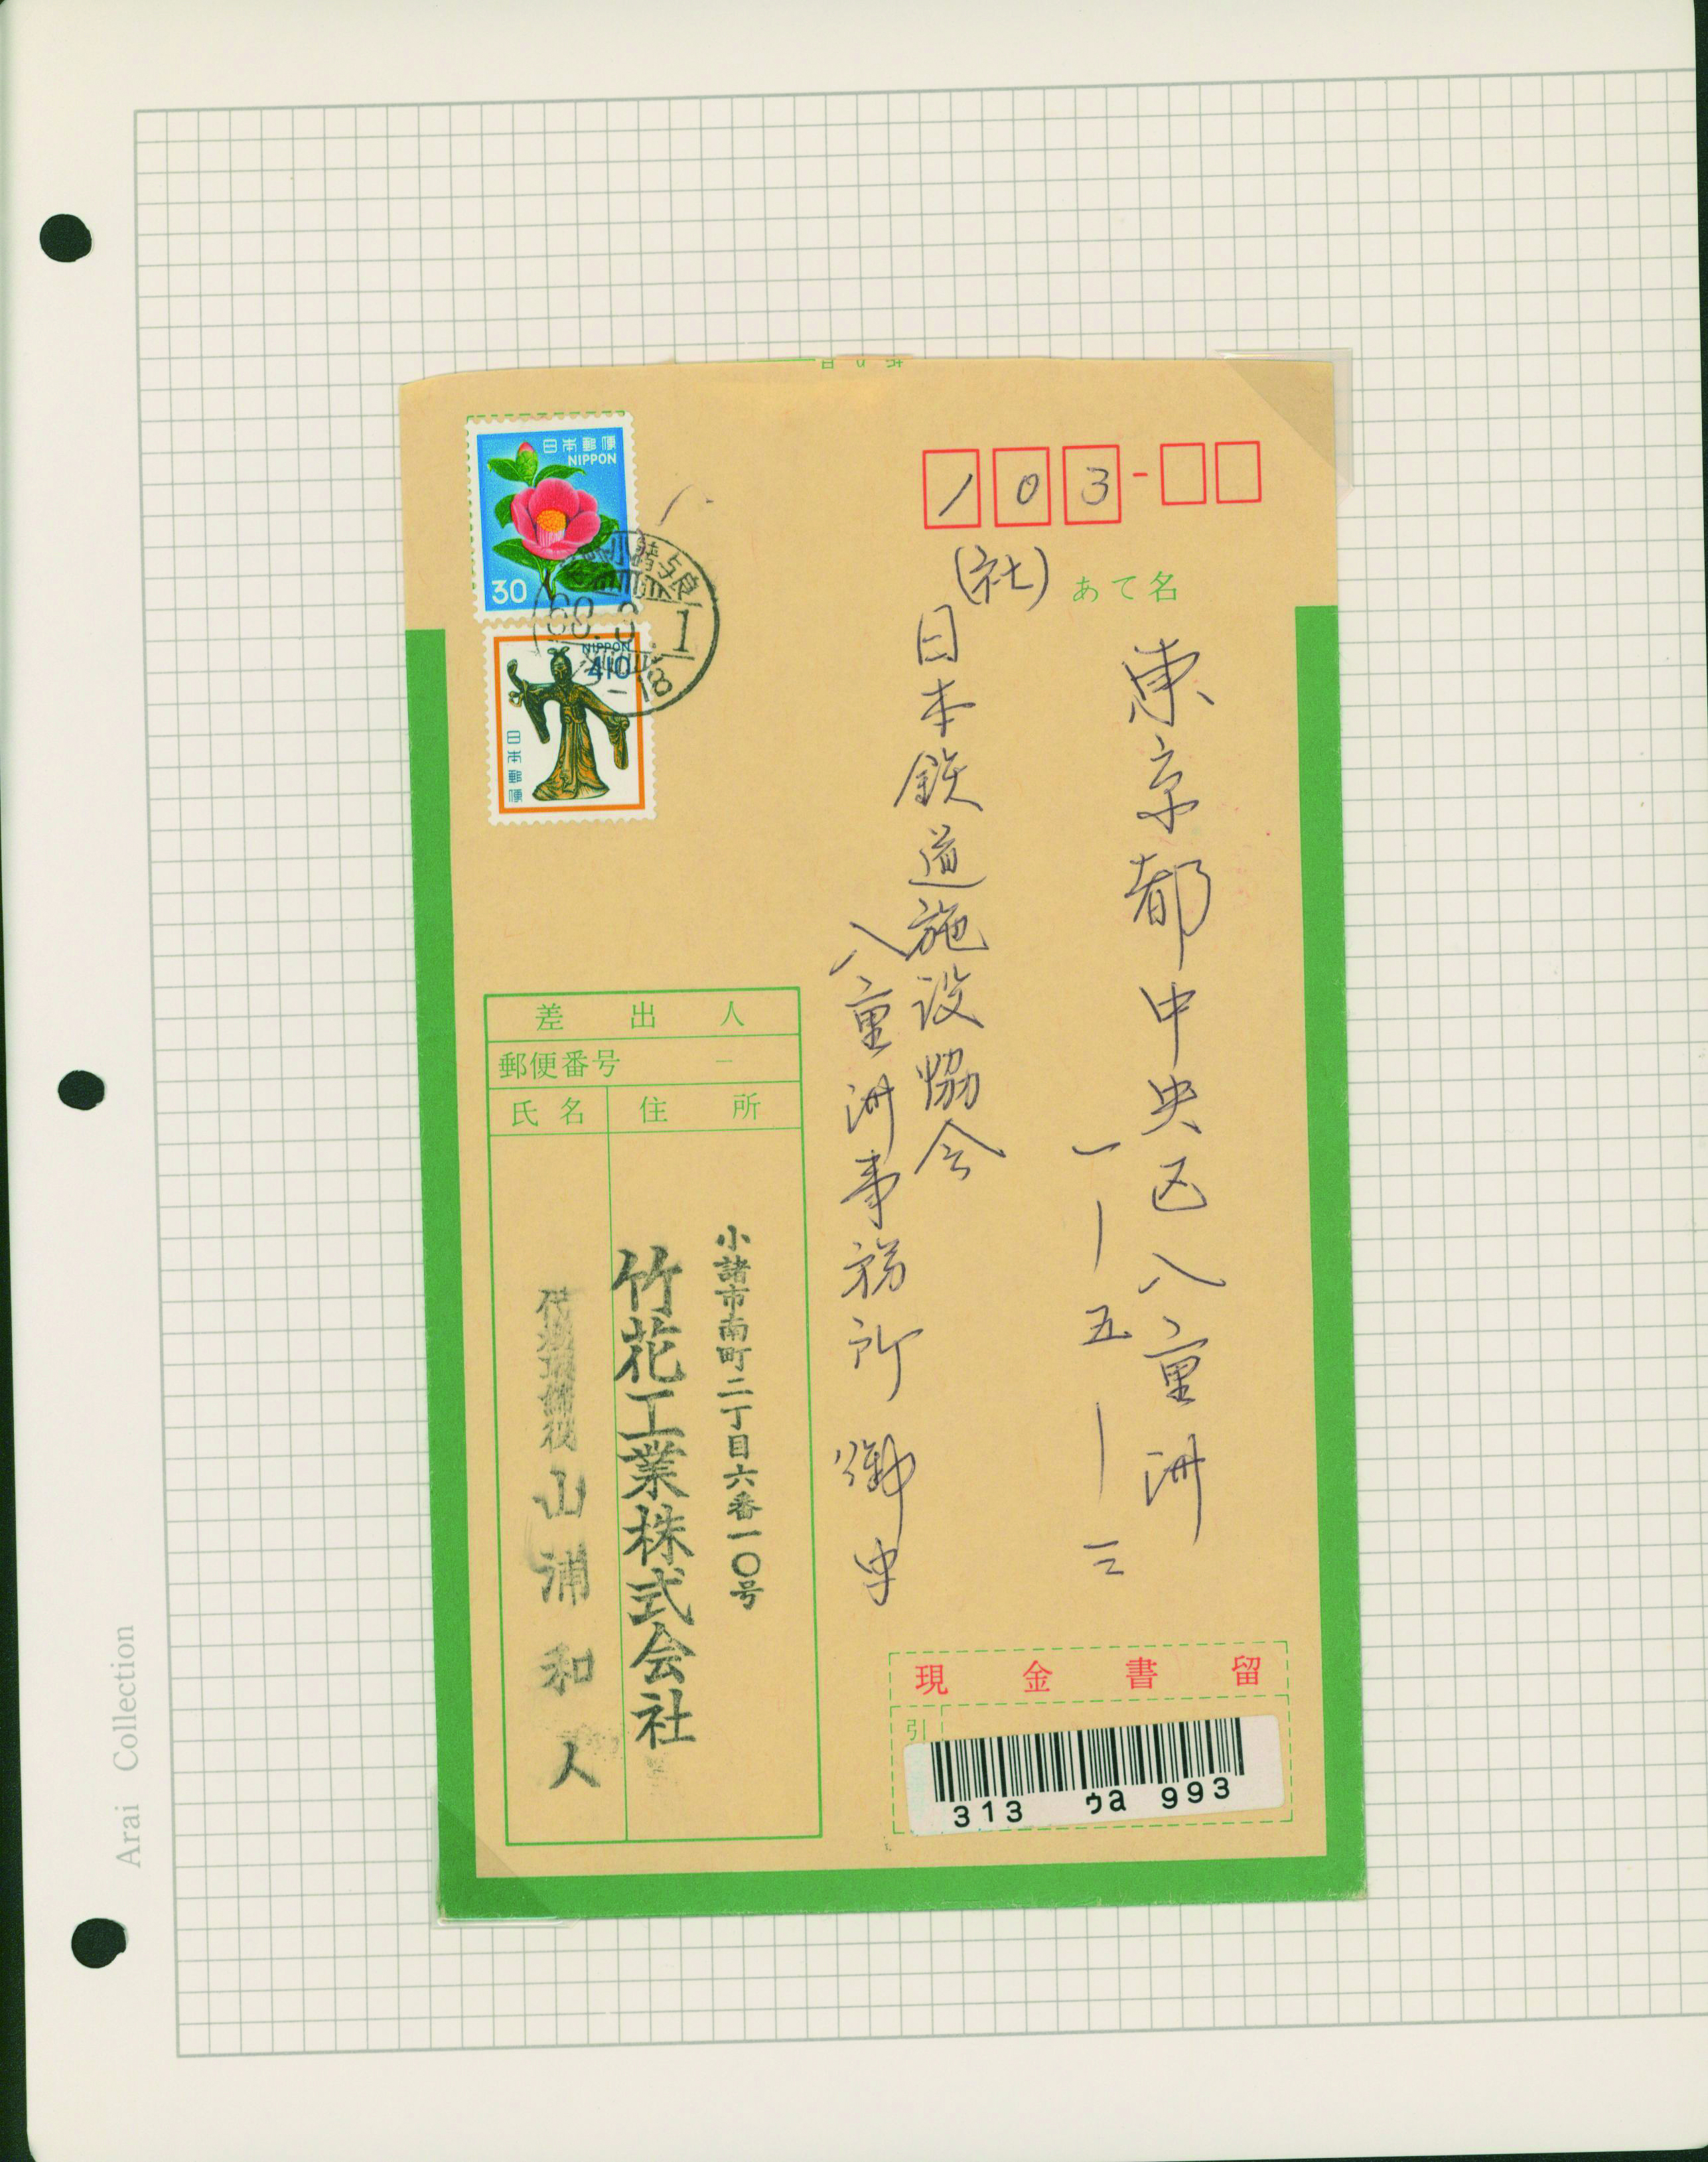 日本郵便
NIPPON
30
小諸与良
NIPPON
410
日本郵便
103-
あて名
東京都中央区八重洲
一ー五ー三
(社)
日本鉄道施設協会
八重洲事務所 御中
差出人
郵便番号 -
氏名 住所
小諸市南町二丁目六番一〇号
竹花工業株式会社
代表取締役 山浦和人
現金書留
引
313 ゥa 993
Arai Collection